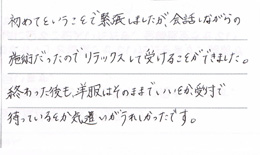 初めてということで緊張しましたが、会話しながらの
施術だったのでリラックスして受けることができました。
終わった後も、洋服はそのままでいいとか、受付で
待っているとか気遣いがうれしかったです。